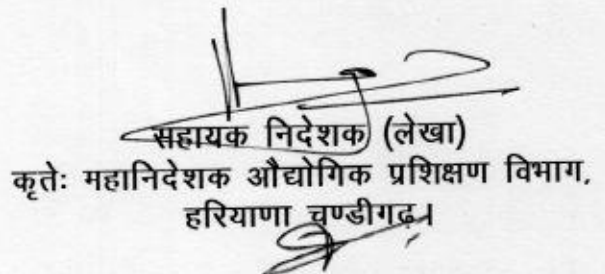 सहायक निदेशक (लेखा)
कृतेः महानिदेशक औद्योगिक प्रशिक्षण विभाग,
हरियाणा चण्डीगढ़।